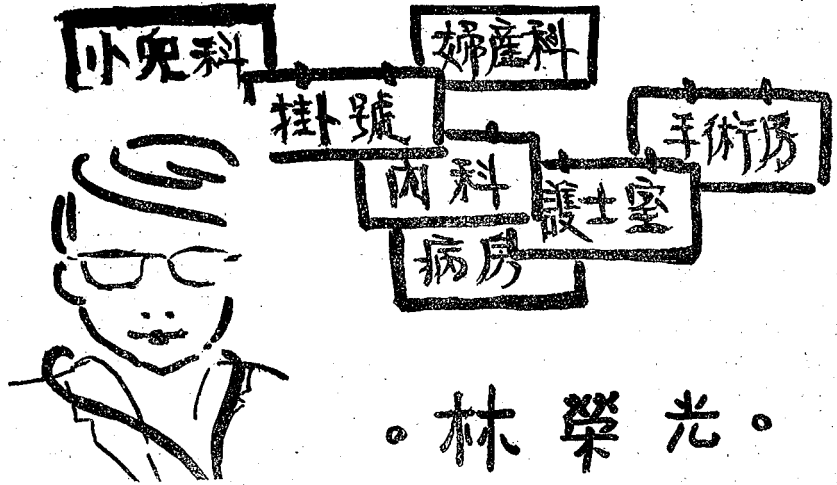 小兒科
婦產科
掛號
手術房
內科
護士室
病房
林榮光